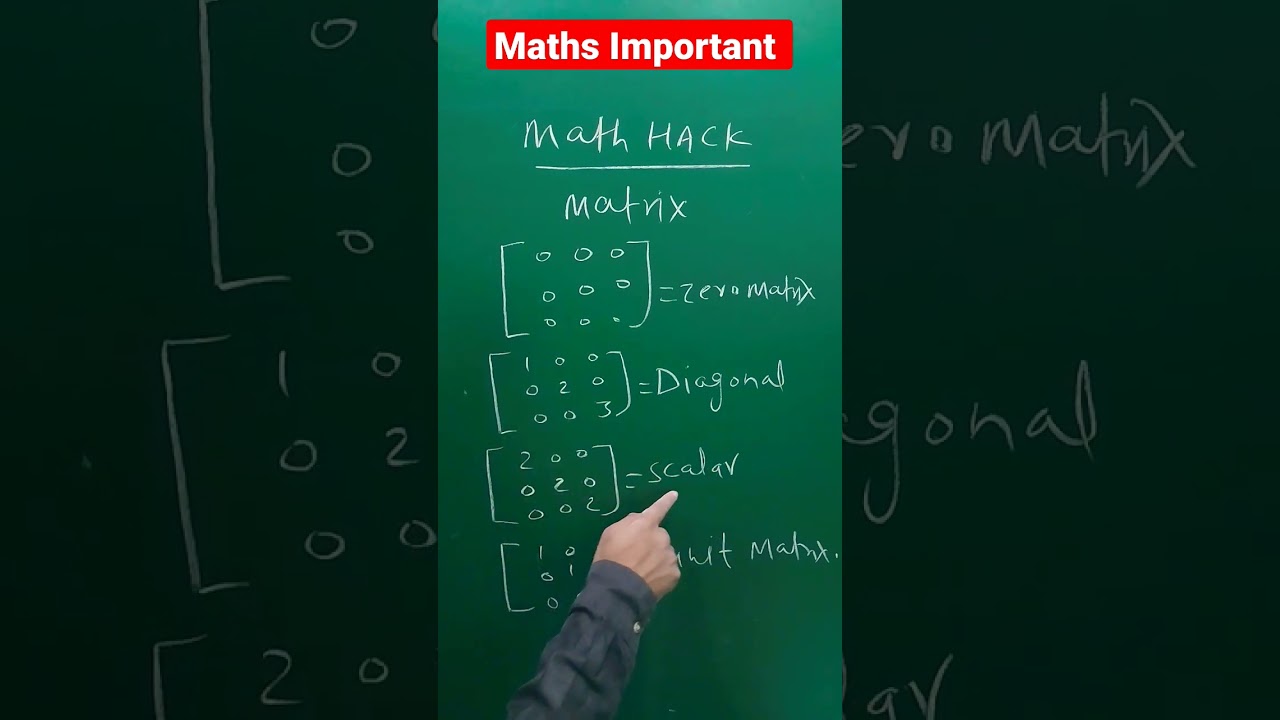 Maths Important
Math HACK
Matrix
0 0 0
0 0 0 = zero Matrix
0 0 0
1 0 0
0 2 0 = Diagonal
0 0 3
2 0 0
0 2 0 = scalar
0 0 2
1 0
0 1 unit Matrix.
0